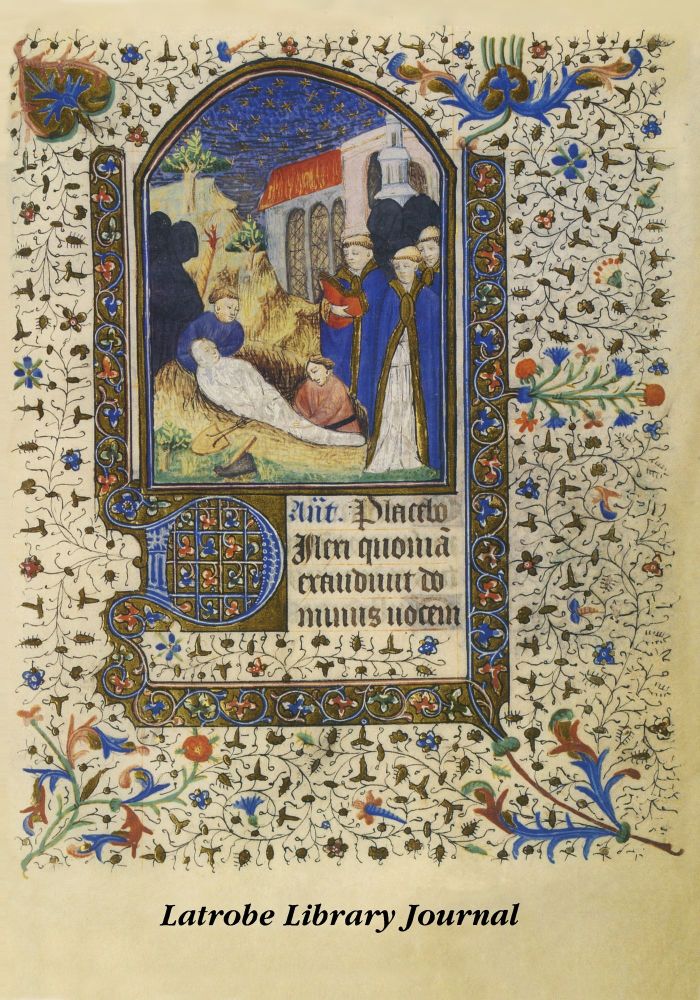 Añt. Placebo
Dilexi quoniã
exaudiuit do
minus uocem
Latrobe Library Journal